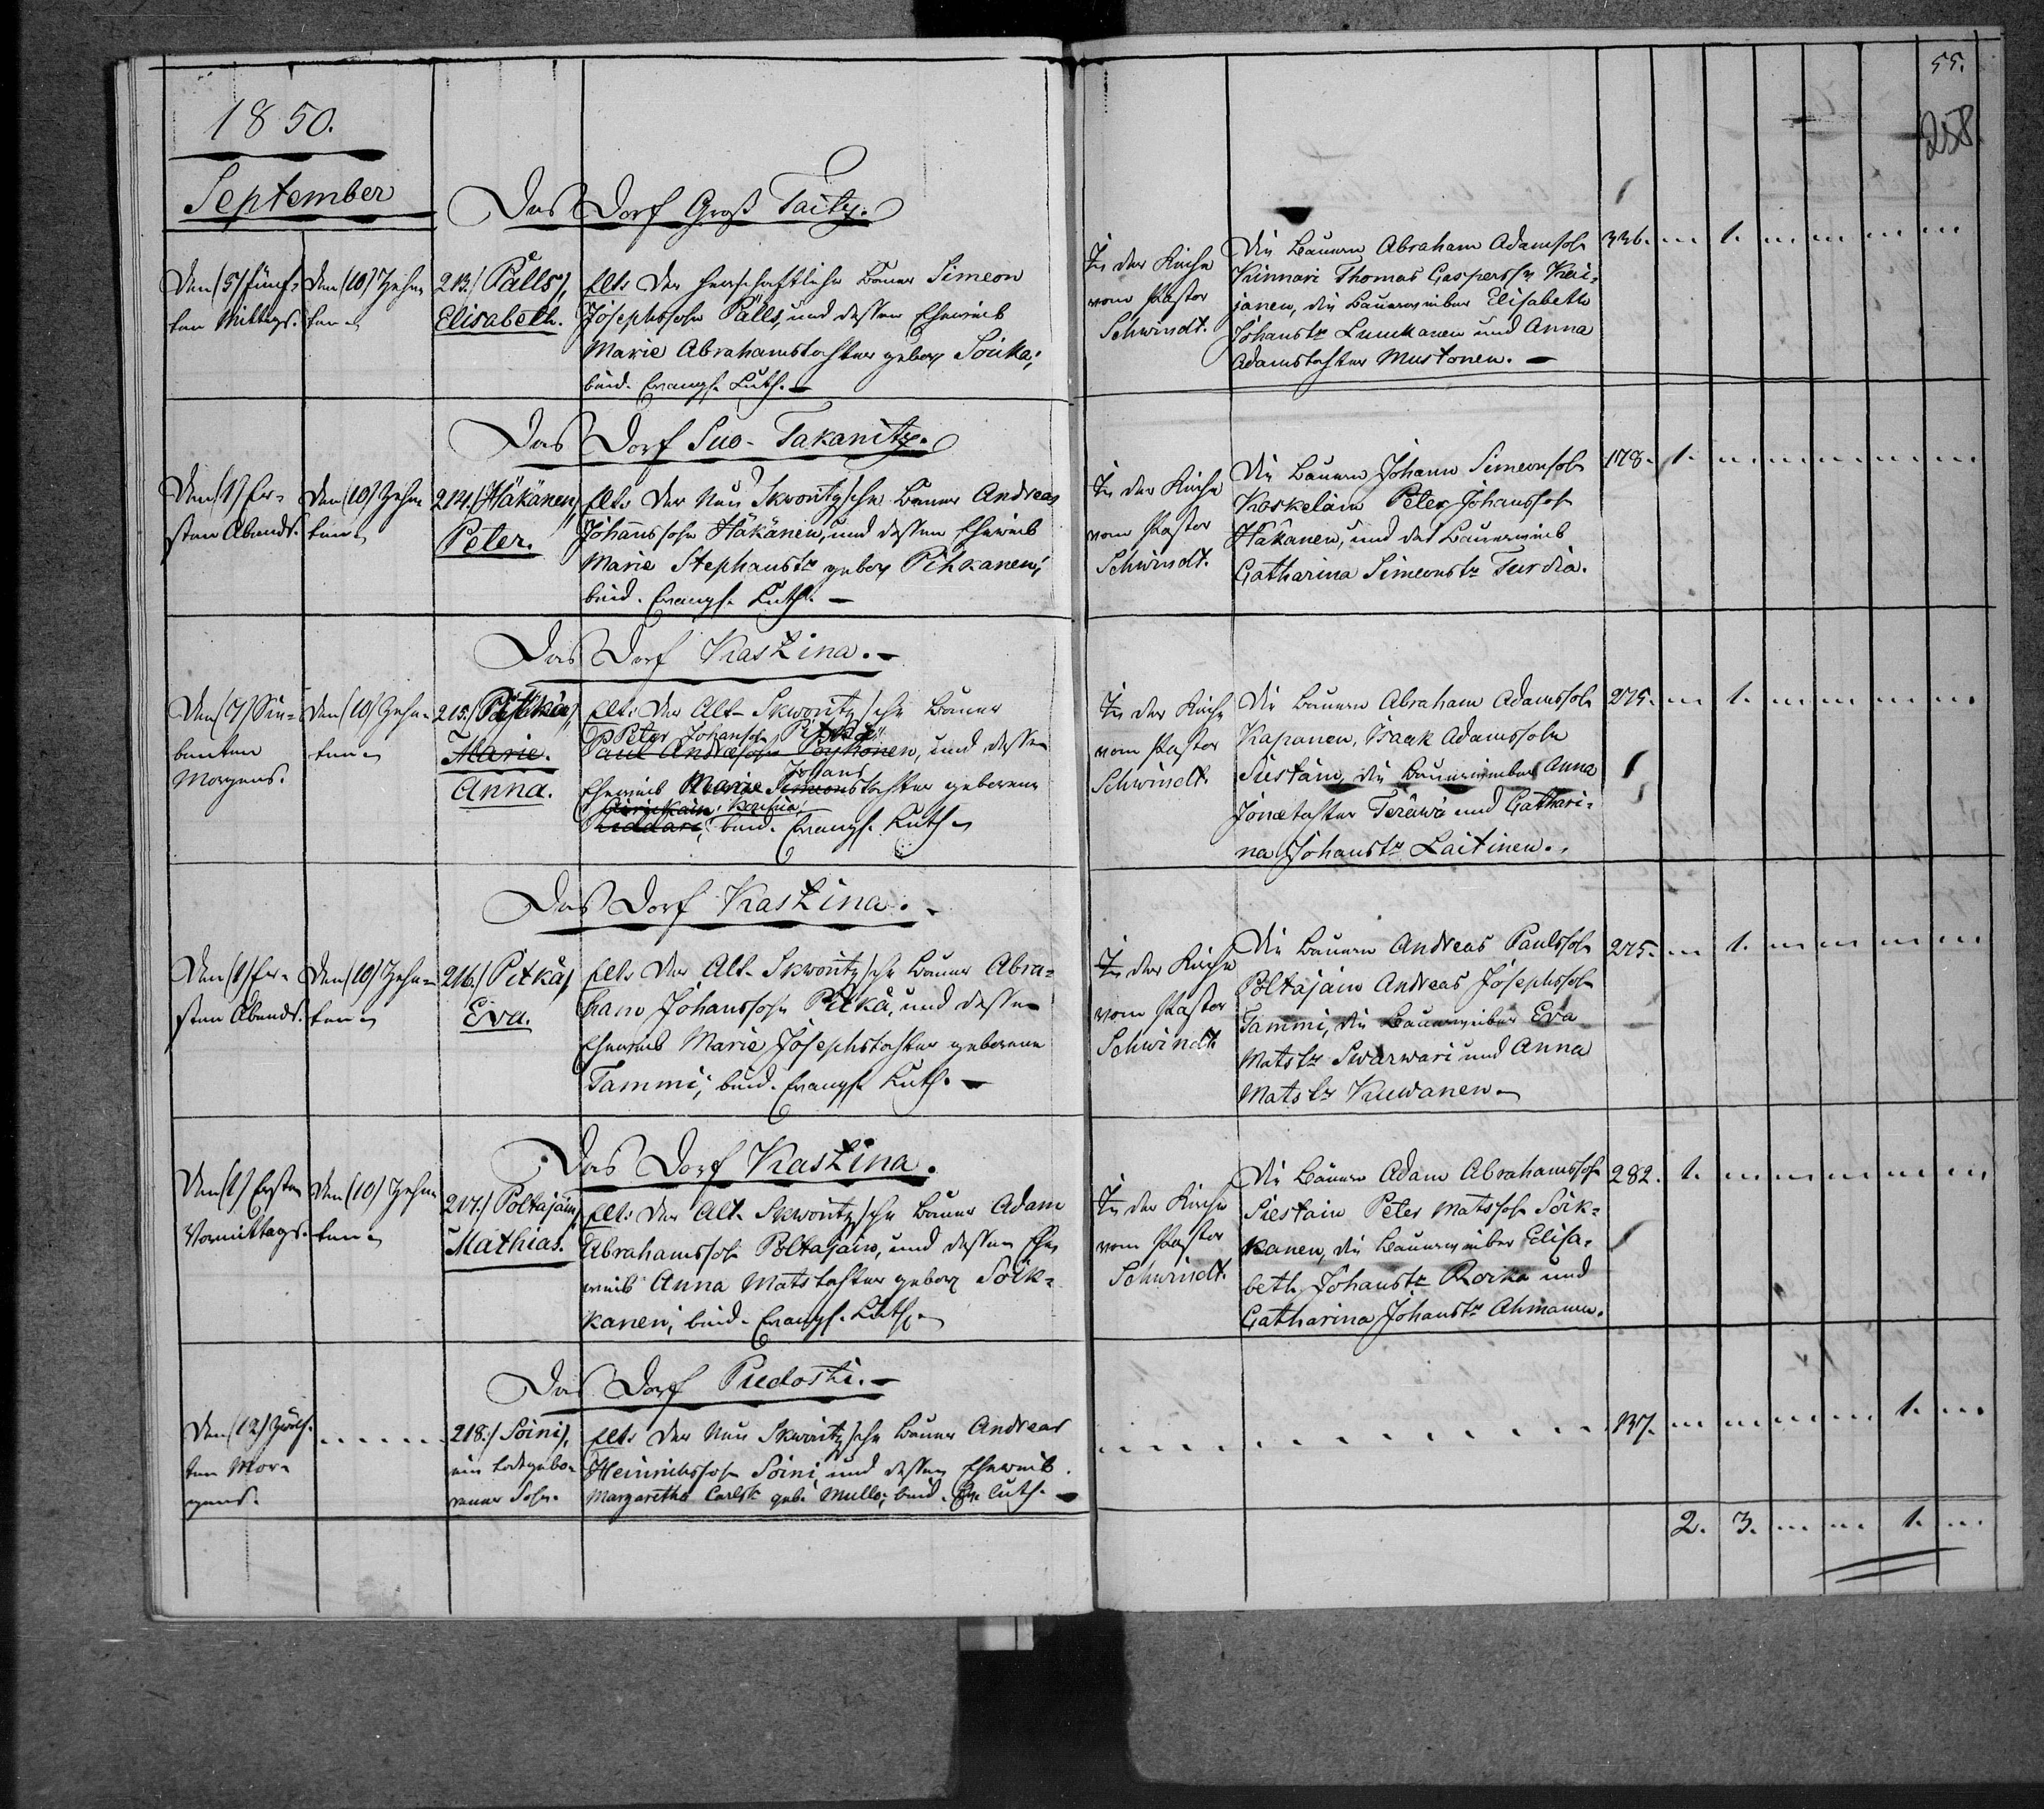 1850.
September
55.
258.
Das Dorf Groß Taitz.
Den (5) fünf-
ten Mittags.
Den (10) Zehn-
ten
213.) Pälls),
Elisabeth.
Elt: Der herrschaftliche Bauer Simeon
Josephssohn Pälls, und dessen Eheweib
Marie Abrahamstochter gebor: Souka;
beid. Evangl. Luth. –
In der Kirche
vom Pastor
Schwindt.
Die Bauern Abraham Adamssoh
Kinnari Thomas Caspers Kai-
janen, die Bauerweiber Elisabeth
Johanstr Lunckanen und Anna
Adamstochter Mustonen. –
336. 1.
Das Dorf Suo-Takanitz.
Den (1) Er-
sten Abends.
Den (10) Zehn-
ten
214.) Häkänen),
Peter.
Elt: Der Neu Skworitzsche Bauer Andreas
Johanssohn Häkänen, und dessen Eheweib
Marie Stephanstr gebor: Pihkanen;
beid. Evangl. Luth. –
In der Kirche
vom Pastor
Schwindt.
Die Bauern Johann Simeonsoh
Koskelain Peter Johanssoh
Häkänen, und das Bauerweib
Catharina Simeonstr Turdia.
178. 1.
Das Dorf Kaskina. –
Den (7) Sie-
benten
Morgens.
Den (10) Zehn-
ten
215.) Pitkä),
Marie.
Anna.
Elt: Der Alt-Skworitzsche Bauer
Peter Johanssoh Pitkä
Paul Andreassohn Poyhonen, und dessen
Johans
Eheweib Marie Simeonstochter geborene
Kiddari; beid. Evangl. Luth.
In der Kirche
vom Pastor
Schwindt.
Die Bauern Abraham Adamssohn
Kapanen, Isaak Adamssohn
Siestain, die Bauerweiber Anna
Jonætochter Teräwä und Cathari-
na Johanstr Laitinen.
275. 1.
Das Dorf Kaskina.
Den (1) Er-
sten Abends.
Den (10) Zehn-
ten
216.) Pitkä),
Eva.
Elt: Der Alt-Skworitzsche Bauer Abra-
ham Johanssohn Pitkä, und dessen
Eheweib Marie Josephstochter geborene
Tammi; beid. Evangl. Luth. –
In der Kirche
vom Pastor
Schwindt
Die Bauern Andreas Paulssoh
Poltajain Andreas Josephssoh
Tammi, die Bauerweiber Eva
Matstr Swarwari und Anna
Matstr Kuwanen
275. 1.
Das Dorf Kaskina.
Den (1) Ersten
Vormittags.
Den (10) Zehn-
ten
217.) Poltajain),
Mathias.
Elt: Der Alt-Skworitzsche Bauer Adam
Abrahamssoh Poltajain, und dessen Ehe
weib Anna Matstochter gebor: Soik-
kanen; beid. Evangl. Luth.
In der Kirche
vom Pastor
Schwindt.
Die Bauern Adam Abrahamssoh
Siestain Peter Matssoh Soik-
kanen, die Bauerweiber Elisa-
beth Johanstr Roika und
Catharina Johanstr Ahmanen.
282. 1.
Das Dorf Pudosti. –
Den (12) Zwölf-
ten Mor-
gens.
218.) Soini),
ein todtgebo-
rener Sohn.
Elt: Der Neu Skworitzsche Bauer Andreas
Heinrichssoh Soini, und dessen Eheweib
Margaretha Carlstr geb. Mullo; beid. Ev. Luth. –
137. 1.
2. 3. 1.